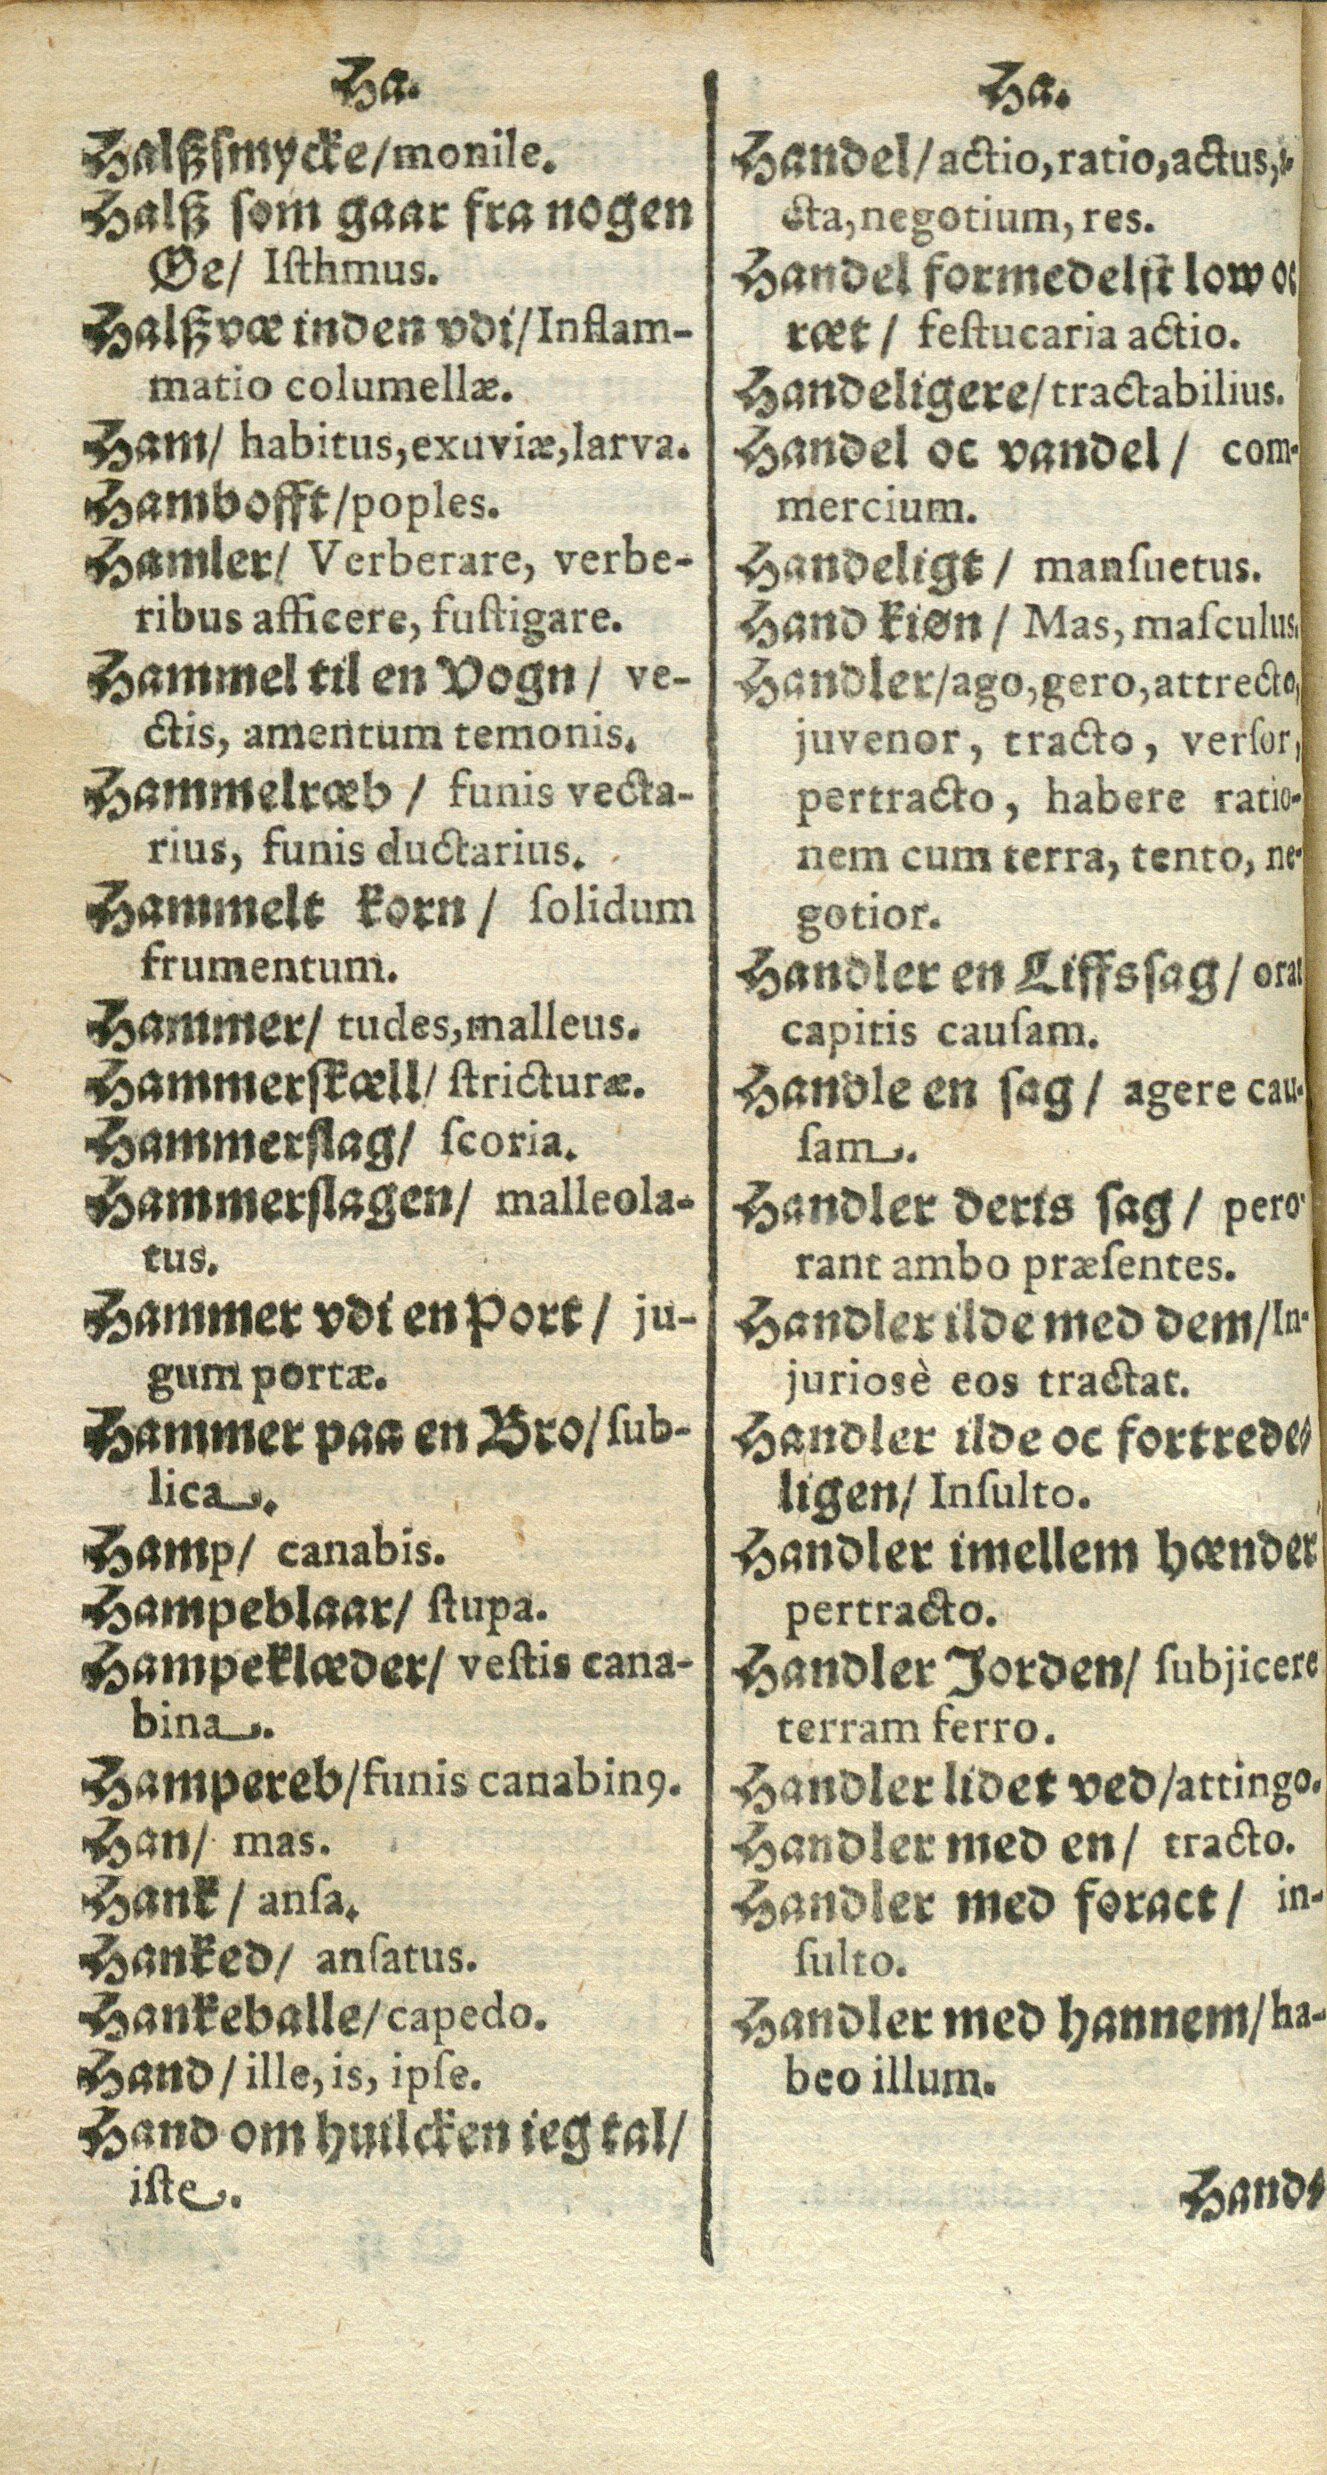 Ha.
Halßſmycke/monile.
Halß ſom gaar fra nogen
Øe/ Iſthmus.
Halßvæ inden vdi/Inflam-
matio columellæ.
Ham/ habitus,exuviæ,larva.
Hambofft/poples.
Hamler/ Verberare, verbe-
ribus afficere, fuſtigare.
Hammel til en Vogn/ ve-
ctis, amentum temonis.
Hammelræb/ funis vecta-
rius, funis ductarius.
Hammelt korn/ ſolidum
frumentum.
Hammer/ tudes,malleus.
Hammerſkæll/ ſtricturæ.
Hammerſlag/ ſcoria.
Hammerſlagen/ malleola-
tus.
Hammer vdi en Port/ ju-
gum portæ.
Hammer paa en Bro/ſub-
lica.
Hamp/ canabis.
Hampeblaar/ ſtupa.
Hampeklæder/ veſtis cana-
bina.
Hampereb/funis canabinꝰ.
Han/ mas.
Hank/ anſa.
Hanked/ anſatus.
Hankeballe/capedo.
Hand/ille,is, ipſe.
Hand om huilcken ieg tal/
iſte.
Ha.
Handel/actio,ratio,actus,
cta,negotium, res.
Handel formedelſt low oc
ræt/ feſtucaria actio.
Handeligere/tractabilius.
Handel oc vandel/ com-
mercium.
Handeligt/ manſuetus.
Hand kiøn/ Mas, maſculus.
Handler/ago,gero,attrecto,
juvenor, tracto, verſor,
pertracto, habere ratio-
nem cum terra, tento, ne-
gotior.
Handler en Liffsſag/ orat
capitis cauſam.
Handle en ſag/ agere cau-
ſam.
Handler deris ſag/ pero-
rant ambo præſentes.
Handler ilde med dem/In-
juriosè eos tractat.
Handler ilde oc fortrede-
ligen/ Inſulto.
Handler imellem hænder
pertracto.
Handler Jorden/ ſubjicere
terram ferro.
Handler lidet ved/attingo.
Handler med en/ tracto.
Handler med foract/ in-
ſulto.
Handler med hannem/ha-
beo illum.
Hands